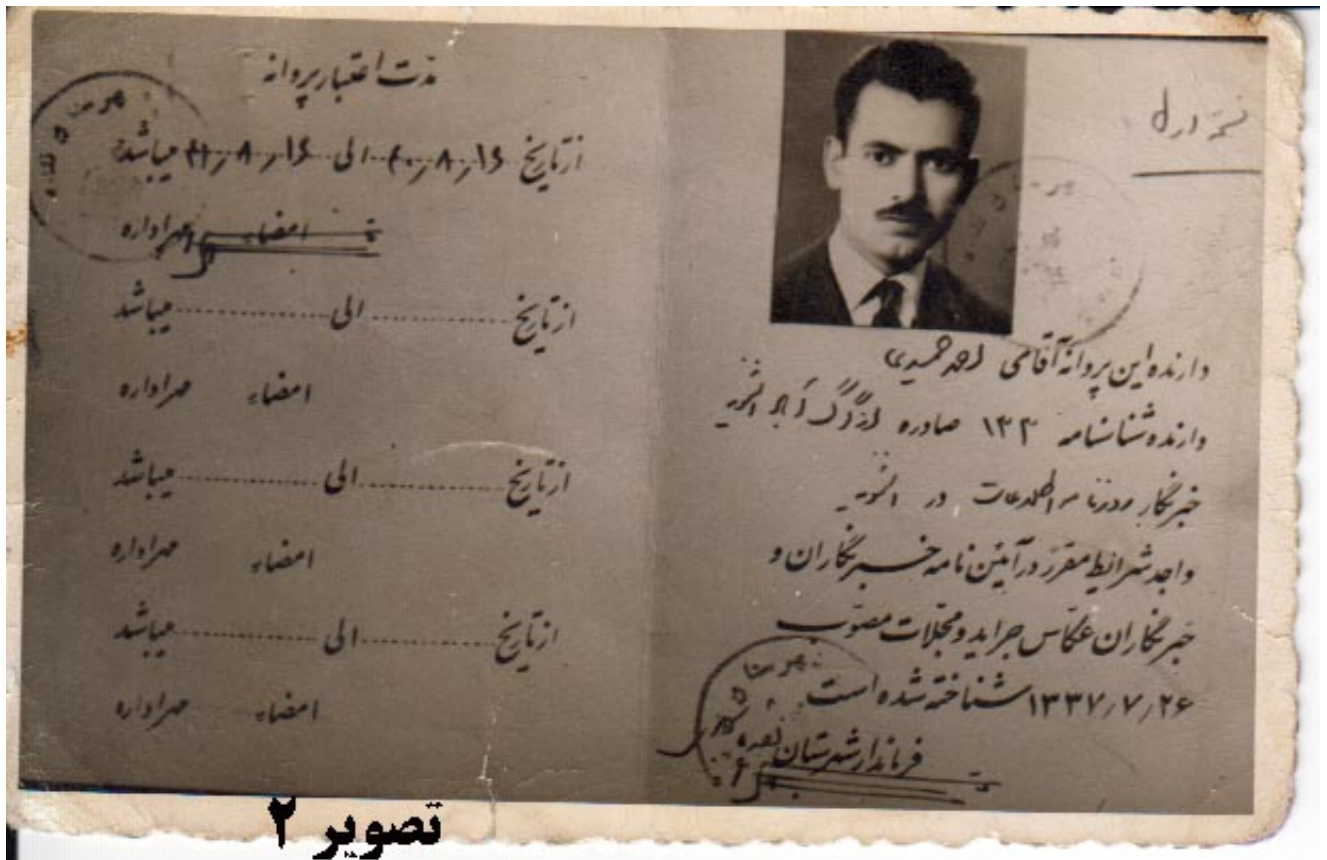 دارنده این پروانه آقای احمد حمیدی
دارنده شناسنامه ۱۳۳ صادره از
خبرنگار روزنامه اطلاعات در
واجد شرایط مقرر در آئین نامه خبرنگاران و
خبرنگاران عکاس جراید و مجلات مصوب
۱۳۳۷٫۷٫۲۶ شناخته شده است.
فرماندار شهرستان
مدت اعتبار پروانه
از تاریخ ۴۰٫۸٫۱۶ الی ۴۱٫۸٫۱۶ میباشد
امضاء مهر اداره
از تاریخ .............. الی .............. میباشد
امضاء مهر اداره
از تاریخ .............. الی .............. میباشد
امضاء مهر اداره
از تاریخ .............. الی .............. میباشد
امضاء مهر اداره
تصویر ۲